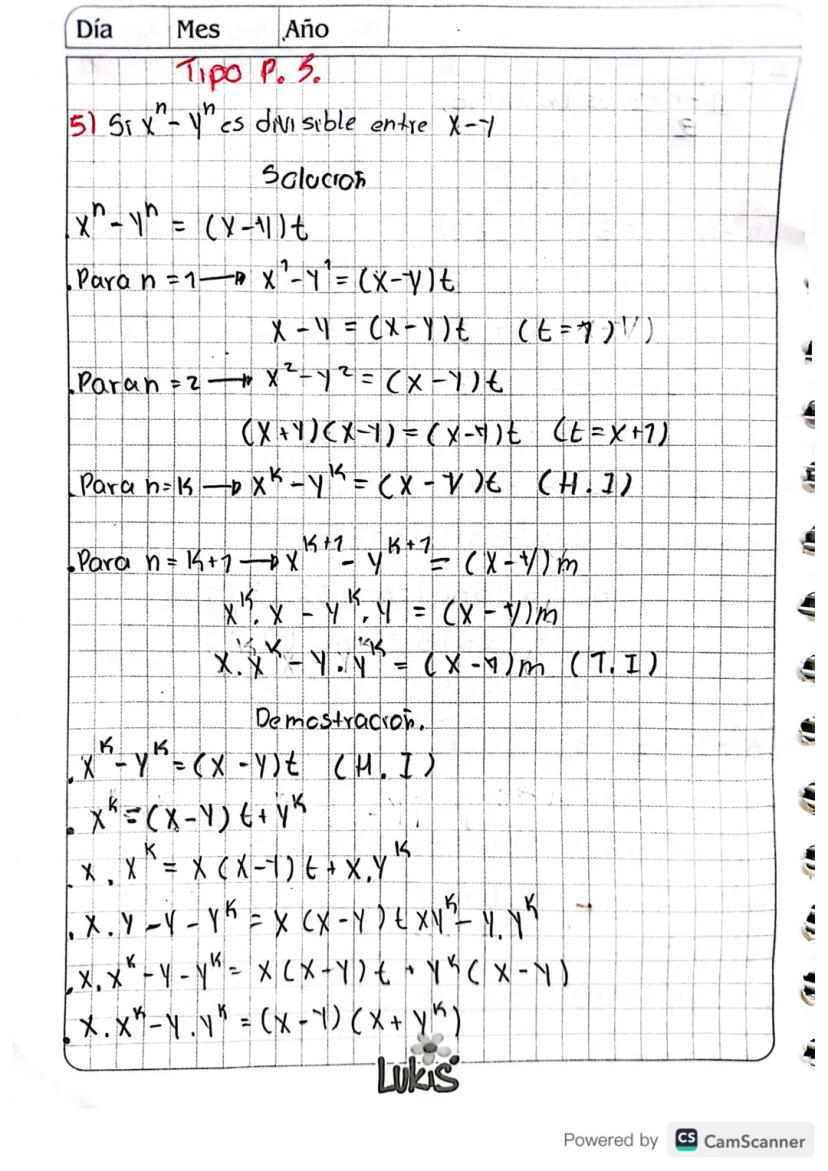 Día Mes Año
Tipo P. S.
5) Si xⁿ - yⁿ es divisible entre x-y
Solución
xⁿ - yⁿ = (x-y)t
.Para n = 1 → x¹ - y¹ = (x-y)t
x - y = (x-y)t (t=1) V)
.Para n = 2 → x² - y² = (x-y)t
(x+y)(x-y) = (x-y)t (t=x+1)
.Para n=k → xᵏ - yᵏ = (x-y)t (H.I)
.Para n = k+1 → xᵏ⁺¹ - yᵏ⁺¹ = (x-y)m
xᵏ.x - yᵏ.y = (x-y)m
x.xᵏ - y.yᵏ = (x-y)m (T.I)
Demostración.
.xᵏ - yᵏ = (x-y)t (H.I)
.xᵏ = (x-y)t + yᵏ
.x.xᵏ = x(x-y)t + x.yᵏ
.x.y - y - yᵏ = x(x-y)t xyᵏ - y.yᵏ
.x.xᵏ - y - yᵏ = x(x-y)t + yᵏ(x-y)
.x.xᵏ - y.yᵏ = (x-y)(x+yᵏ)
Lukis
Powered by CS CamScanner